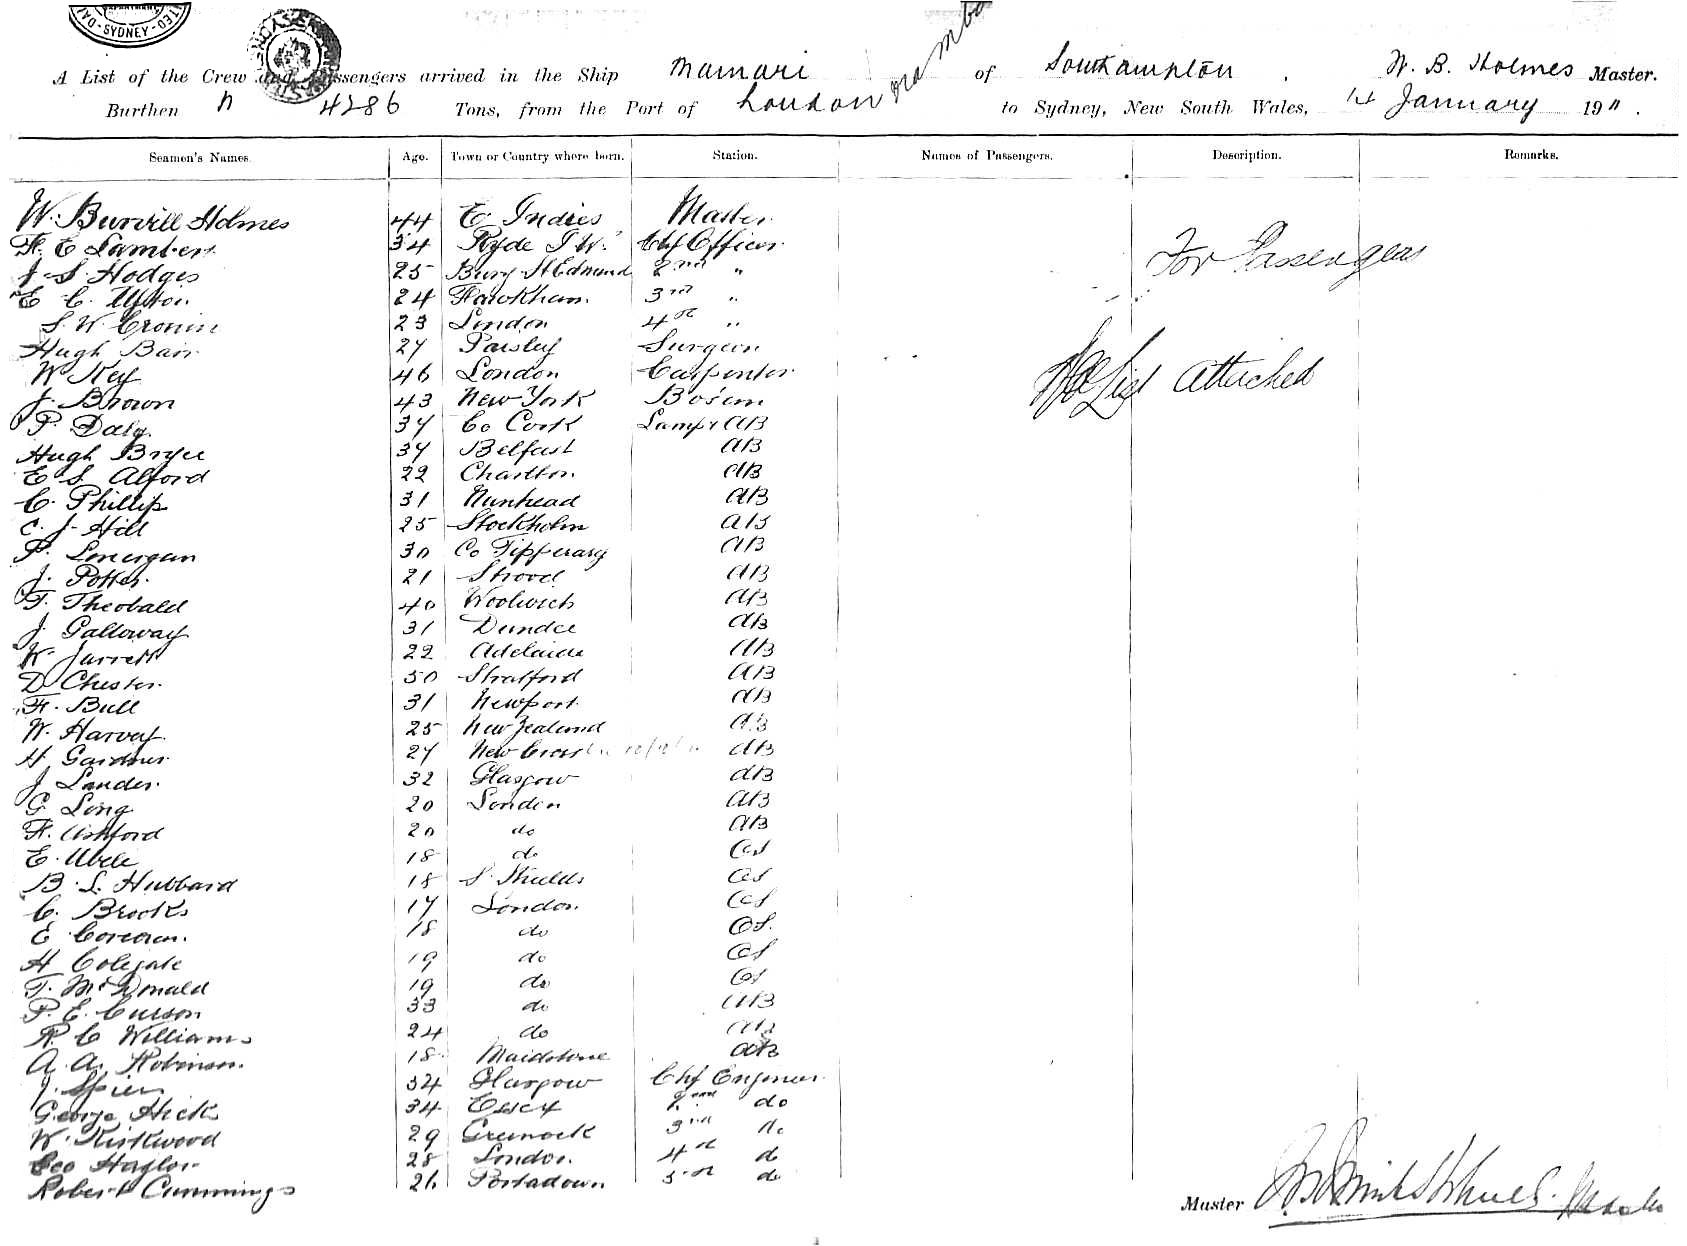 SYDNEY
A List of the Crew and Passengers arrived in the Ship Mamari of Southampton, W. B. Holmes Master.
Burthen 4286 Tons, from the Port of London to Sydney, New South Wales, 14 January 1911.
Seamen's Names. Age. Town or Country where born. Station. Names of Passengers. Description. Remarks.
W. Burvill Holmes 44 E Indies Master
F. E Lambert 34 Ryde I W. Chf Officer
J S Hodges 25 Bury St Edmund 2nd "
E C. Upton 24 Hawkham 3rd "
S. W. Cronin 23 London 4th "
Hugh Barr 27 Paisley Surgeon
W Key 46 London Carpenter
J. Brown 43 New York Bo'sun
P. Daly 37 Co Cork Lamps AB
Hugh Bryce 37 Belfast AB
E S Alford 22 Charlton AB
C. Phillips 31 Nunhead AB
C. J. Hill 25 Stockholm AB
P. Lonergan 30 Co Tipperary AB
J. Potter 21 Strood AB
T. Theobald 40 Woolwich AB
J. Galloway 31 Dundee AB
W. Jarrett 22 Adelaide AB
D Chester 50 Stratford AB
F. Bull 31 Newport AB
W. Harvey 25 New Zealand AB
H Gardner 27 New Cross AB
J Lander 32 Glasgow AB
G Long 20 London AB
F. Ashford 20 do AB
E. Abele 18 do OS
B. L. Hubbard 18 S. Shields OS
C. Brooks 17 London OS
E Corcoran 18 do OS.
H Colegate 19 do OS
T. McDonald 19 do OS
P. E. Curson 33 do AB
R. C Williams 24 do AB
A. A. Robinson 18 Maidstone
J. Spiers 34 Glasgow Chf Engineer
George Hicks 34 Essex 2nd do
W. Kirkwood 29 Greenock 3rd do
Geo Haylor 28 London 4th do
Robert Cummings 26 Portadown 5th do
For Passengers
List attached
Master Master